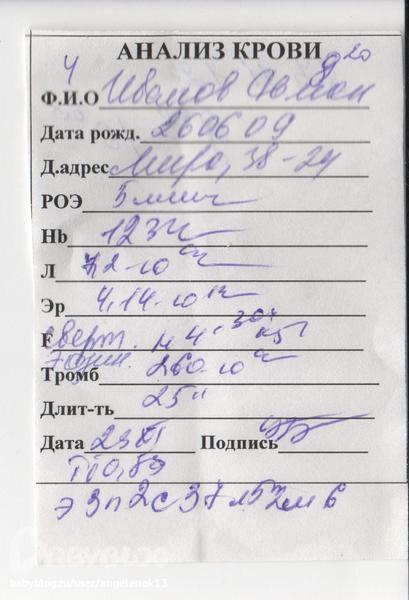 4 920
АНАЛИЗ КРОВИ
Ф.И.О Иванов
Дата рожд. 260609
Д.адрес Мира, 38-24
РОЭ 5 мм/ч
Hb 123
Л 7,2·10
Эр 4,14·10¹²
сверт. н 4' 30" к 5'
Тромб 260·10
Длит-ть 25"
Дата 23 XI Подпись
ЦП 0,89
э 3 п 2 с 37 л 52 м 6
BABYBLOG
babyblog.ru/user/angelenok13